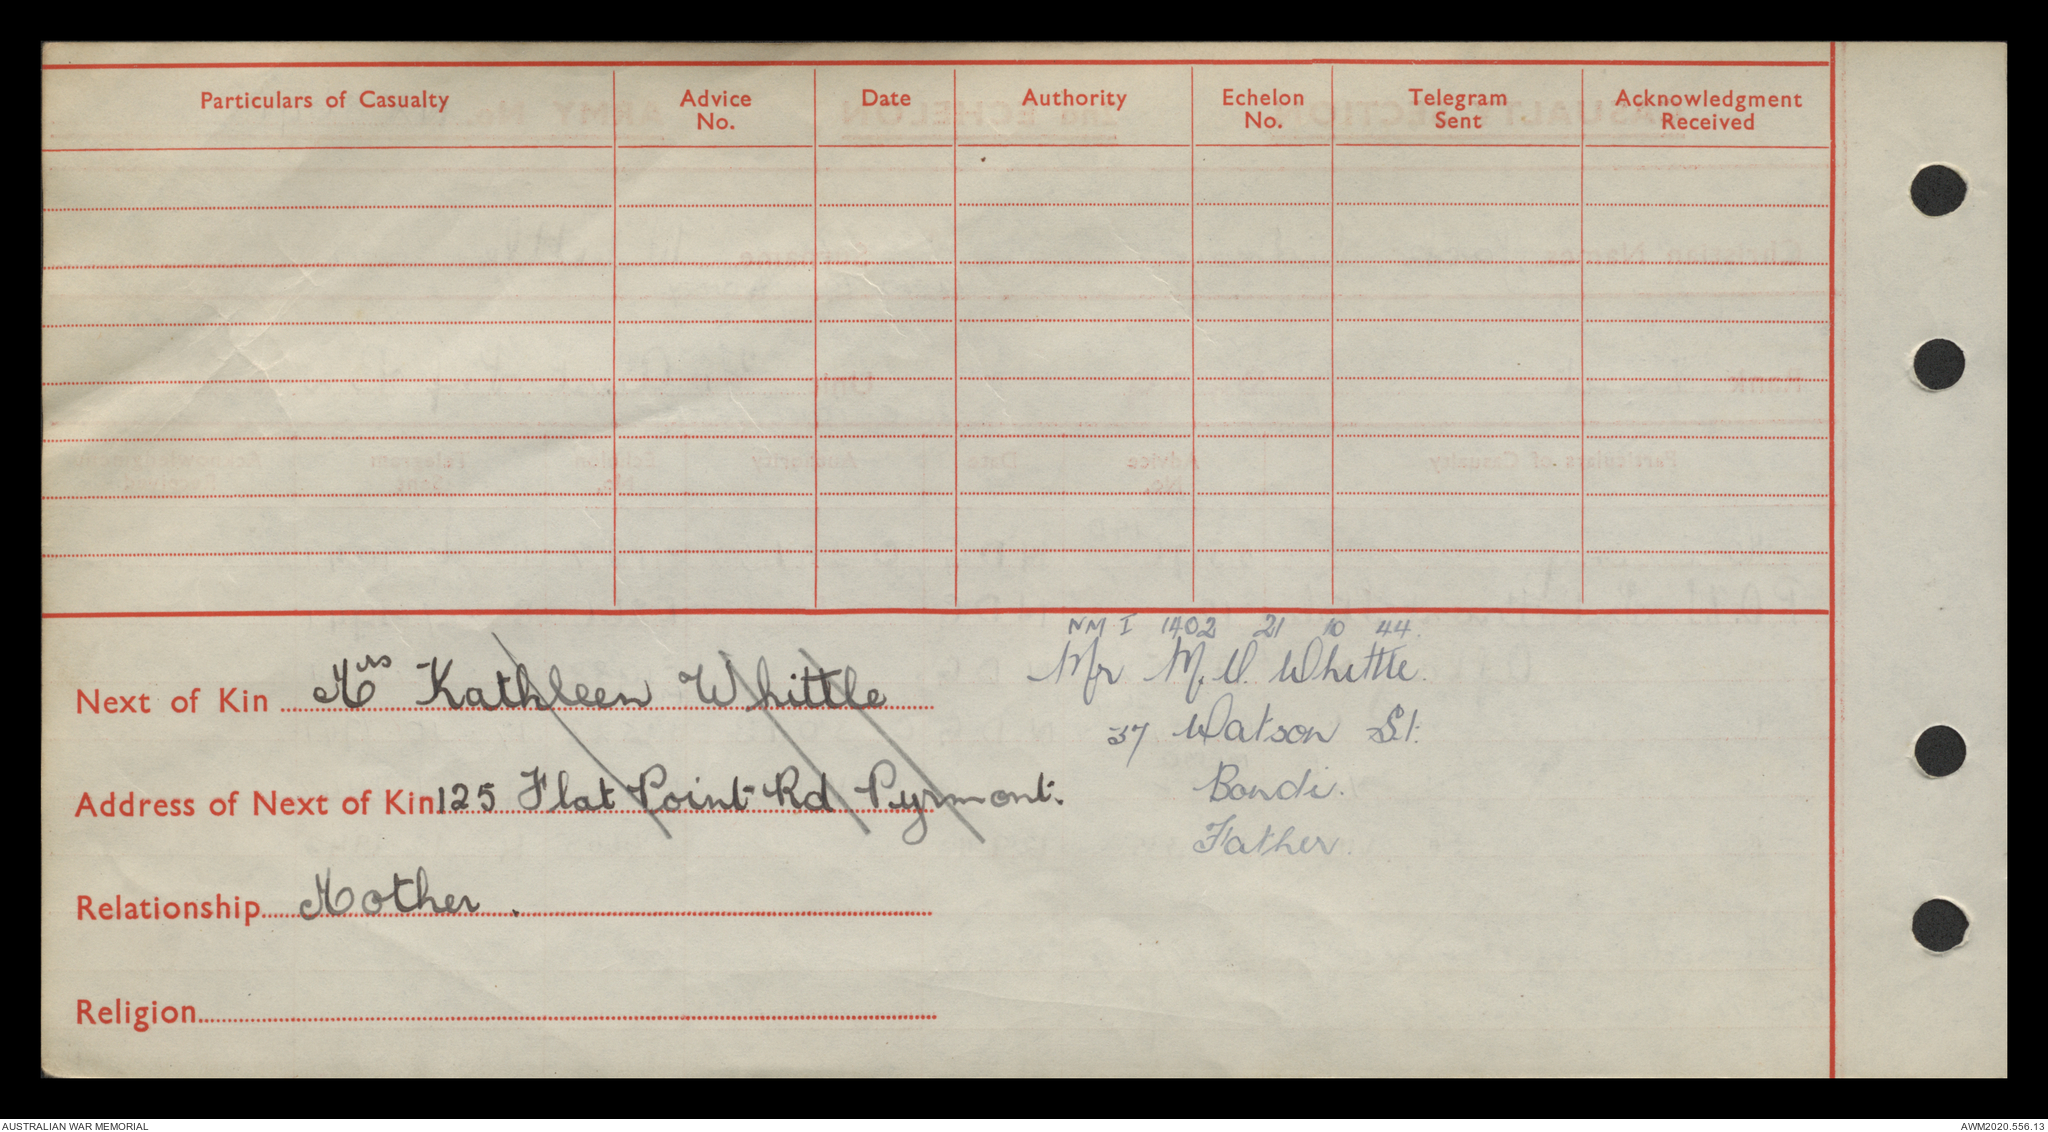 Particulars of Casualty Advice No. Date Authority Echelon No. Telegram Sent Acknowledgment Received
NM I 1402 21 10 44.
Next of Kin Mrs Kathleen Whittle Mr M. V. Whittle.
37 Watson St.
Address of Next of Kin 125 Flat Point Rd Pyrmont. Bondi.
Father.
Relationship Mother.
Religion
AUSTRALIAN WAR MEMORIAL AWM2020.556.13